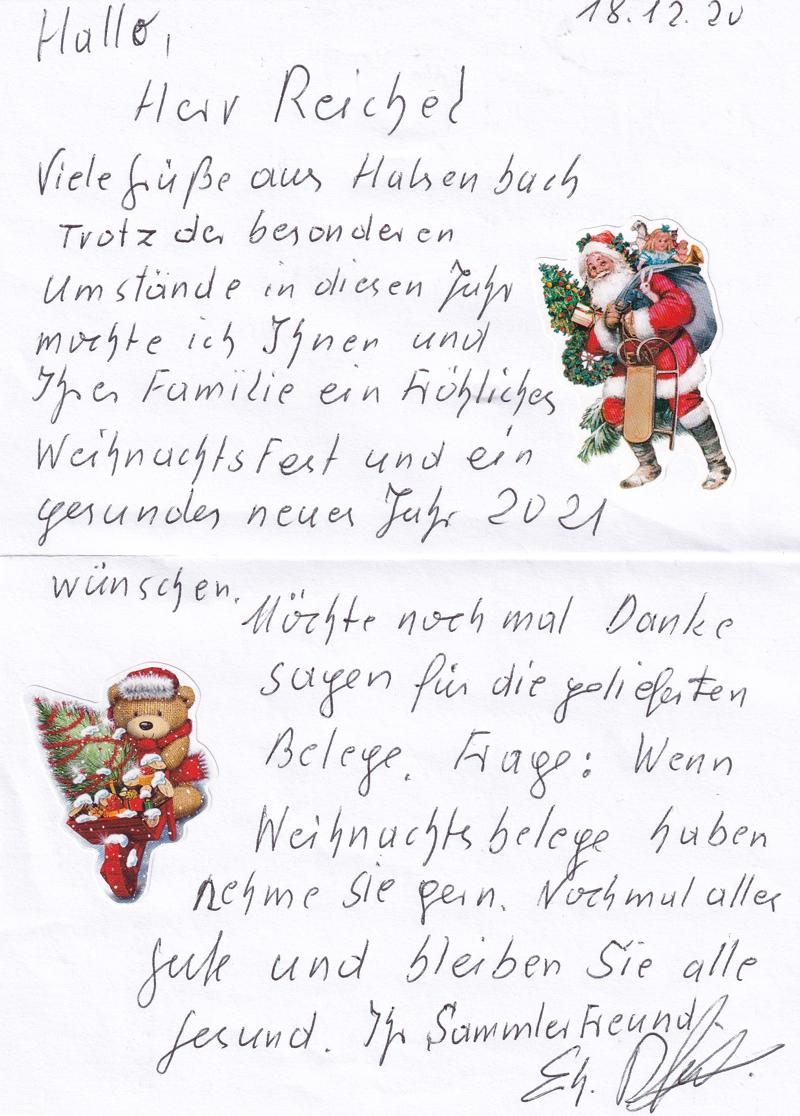 18.12.20
Hallo,
Herr Reichel
Viele Grüße aus Halsenbach
Trotz der besonderen
Umstände in diesen Jahr
mochte ich Ihnen und
Ihrer Familie ein Fröhliches
WeihnachtsFest und ein
gesundes neues Jahr 2021
wünschen.
Möchte noch mal Danke
sagen für die gelieferten
Belege. Frage: Wenn
Weihnachtsbelege haben
nehme Sie gern. Nochmal alles
Gute und bleiben Sie alle
Gesund. Ihr SammlerFreund